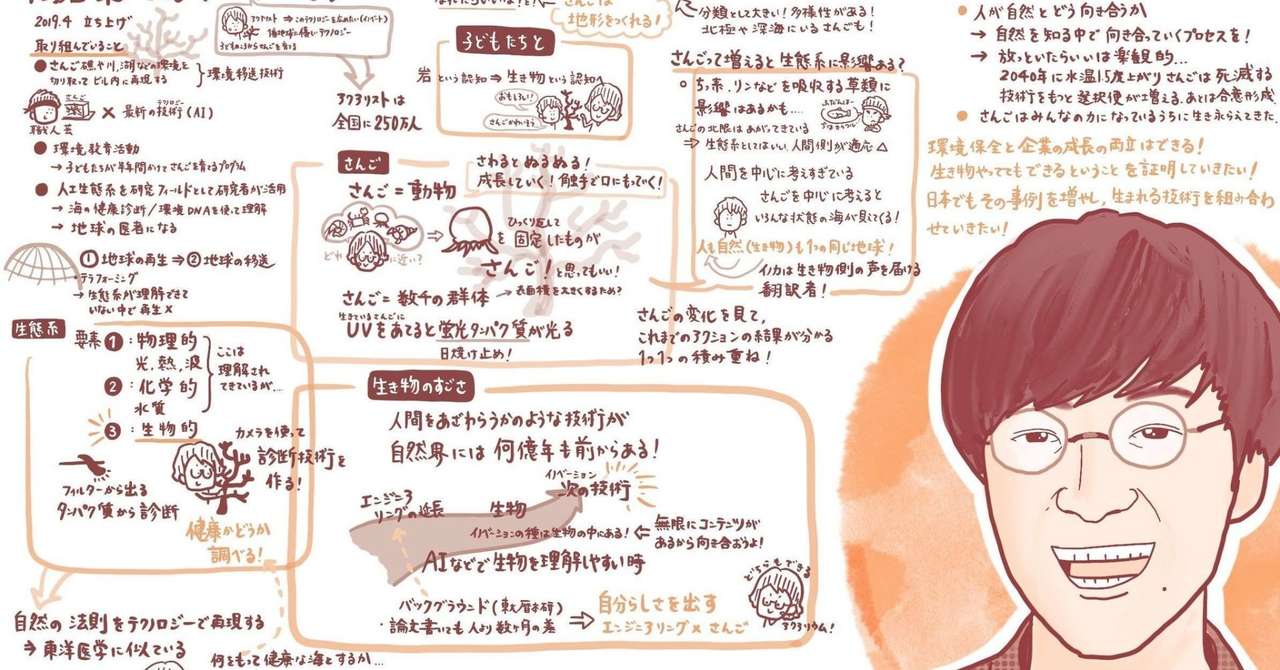 2019.4 立ち上げ
取り組んでいること
さんご礁や川、湖などの環境を
切り取ってビル内に再現する
環境移送技術
さんご
職人芸
× 最新の技術(AI)
テクノロジー
環境教育活動
→ 子どもたちが半年間かけてさんご育てるプログラム
人工生態系を研究フィールドとして研究者が活用
→ 海の健康診断/環境DNAを使って理解
→ 地球の医者になる
① 地球の再生 ⇒ ② 地球の移送
・テラフォーミング
→ 生態系が理解できて
いない中で再生 ×
アクアリスト ⇒ このテクノロジーを広めたい
子どものころからさんごを育てる
アクアリストは
全国に250万人
さんごは
地形をつくれる!
子どもたちと
岩という認知 ⇒ 生き物という認知へ
おもしろい!
さんごかわいそう
さんご
さわるとぬるぬる!
成長していく! 触手で口にもっていく!
さんご = 動物
どれに近い?
ひっくり返して
を固定したものが
さんご! と思ってもいい!
さんご = 数千の群体
→ 表面積を大きくするため?
生きているさんごに
UVをあてると蛍光タンパク質が光る
日焼け止め!
生態系
要素 ① : 物理的
光、熱、波
② : 化学的
水質
③ : 生物的
ここは
理解され
てきているが…
カメラを使って
診断技術を
作る!
フィルターから出る
タンパク質から診断
健康かどうか
調べる!
自然の法則をテクノロジーで再現する
⇒ 東洋医学に似ている
何をもって健康な海とするか…
生き物のすごさ
人間をあざわらうかのような技術が
自然界には何億年も前からある!
エンジニア
リングの延長
生物
イノベーション
次の技術
イノベーションの種は生物の中にある!
⇐ 無限にコンテンツが
あるから向き合おうよ!
AIなどで生物を理解しやすい時
バックグラウンド
・論文書くにも人より数ヶ月の差
⇒ 自分らしさを出す
エンジニアリング × さんご
どちらもできる
アクアリウム!
分類として大きい! 多様性がある!
北極や深海にいるさんごも!
さんごって増えると生態系に影響ある?
ちっ素、リンなどを吸収する草類に
影響はあるかも…
さんごの北限はあがってきている
⇒ 生態系としてはいい、人間側が適応 △
人間を中心に考えすぎている
さんごを中心に考えると
いろんな状態の海が見てくる!
人も自然(生き物)も1つの同じ地球!
イノカは生き物側の声を届ける
翻訳者!
さんごの変化を見て、
これまでのアクションの結果が分かる
1つ1つの積み重ね!
人が自然とどう向き合うか
→ 自然を知る中で向き合っていくプロセスを!
→ 放っといたらいいは楽観的…
2040年に水温1.5度上がりさんごは死滅する
技術をもっと選択使が増える。あとは合意形成
さんごはみんなの力になっているうちに生き永らえてきた。
環境保全と企業の成長の両立はできる!
生き物やっててもできるということを証明していきたい!
日本でもその事例を増やし、生まれる技術を組み合わ
せていきたい!